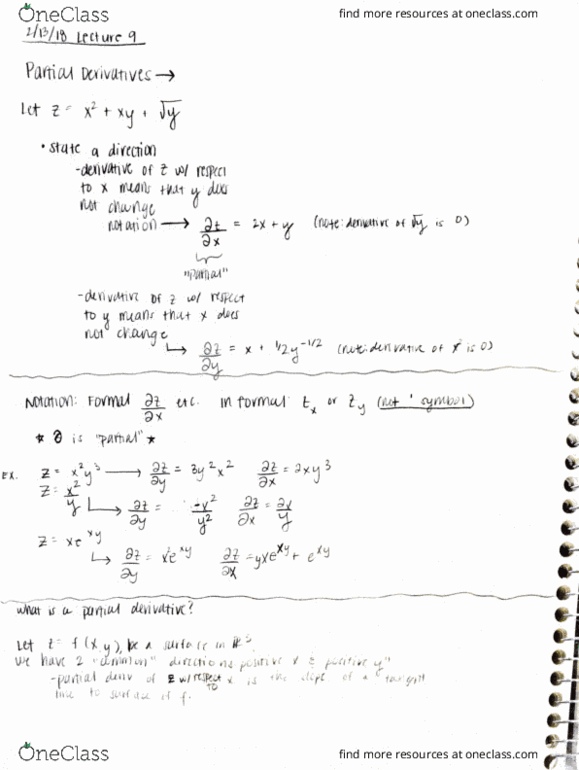 OneClass find more resources at oneclass.com
2/13/18 Lecture 9
Partial Derivatives →
Let z = x² + xy + √y
• state a direction
-derivative of z w/ respect
to x means that y does
not change
notation → ∂z/∂x = 2x + y (note: derivative of √y is 0)
"partial"
-derivative of z w/ respect
to y means that x does
not change
↳ ∂z/∂y = x + 1/2y^-1/2 (note: derivative of x² is 0)
Notation: Formal ∂z/∂x etc. Informal: Zx or Zy (not ' symbol)
* ∂ is "partial" *
EX. z = x²y³ → ∂z/∂y = 3y²x² ∂z/∂x = 2xy³
z = x²/y ↳ ∂z/∂y = -x²/y² ∂z/∂x = 2x/y
z = xe^xy
↳ ∂z/∂y = x²e^xy ∂z/∂x = yxe^xy + e^xy
what is a partial derivative?
Let z = f(x,y), be a surface in R³
we have 2 "common" directions positive x & positive y"
-partial deriv of z w/ respect to x is the slope of a tangent
line to surface of f.
OneClass find more resources at oneclass.com